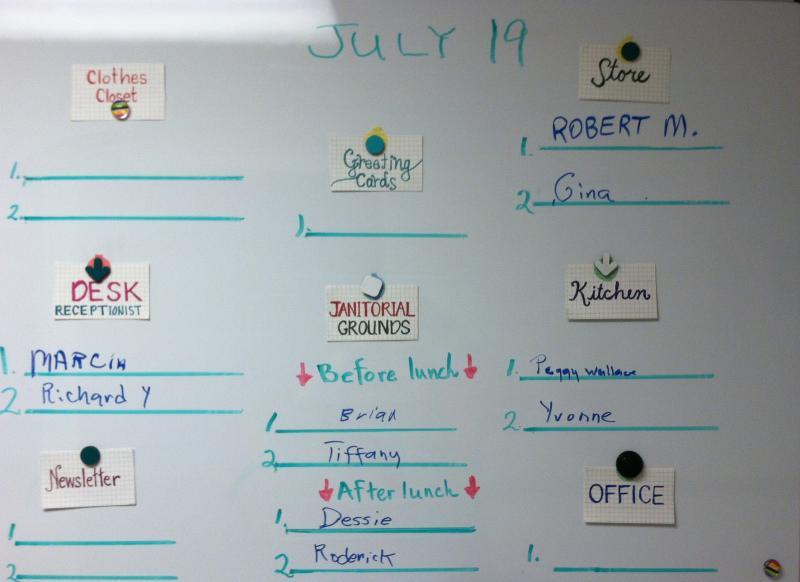 JULY 19
Clothes
Closet
1.
2.
Greeting
Cards
1.
Store
1. ROBERT M.
2 Gina
DESK
RECEPTIONIST
1. MARCIA
2 Richard Y
JANITORIAL
GROUNDS
Before lunch
1. Brian
2. Tiffany
After lunch
1. Dessie
2. Roderick
Kitchen
1. Peggy Wallace
2. Yvonne
Newsletter
1.
2.
OFFICE
1.